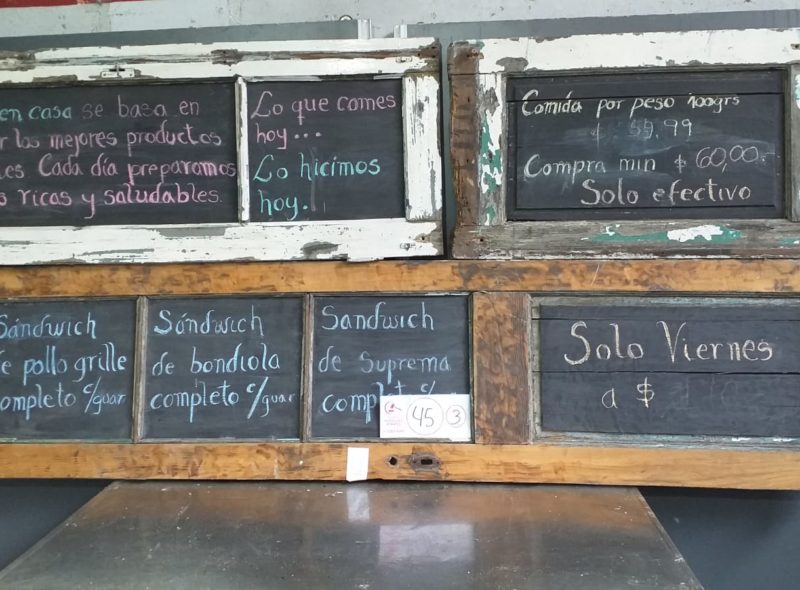 en casa se basa en
r los mejores productos
es Cada día preparamos
s ricas y saludables.
Lo que comes
hoy...
Lo hicimos
hoy.
Comida por peso 100grs
$ 59,99
Compra min $ 60,00.-
Solo efectivo
Sándwich
e pollo grille
ompleto c/guar
Sándwich
de bondiola
completo c/guar
Sandwich
de Suprema
comp
45 3
Solo Viernes
a $